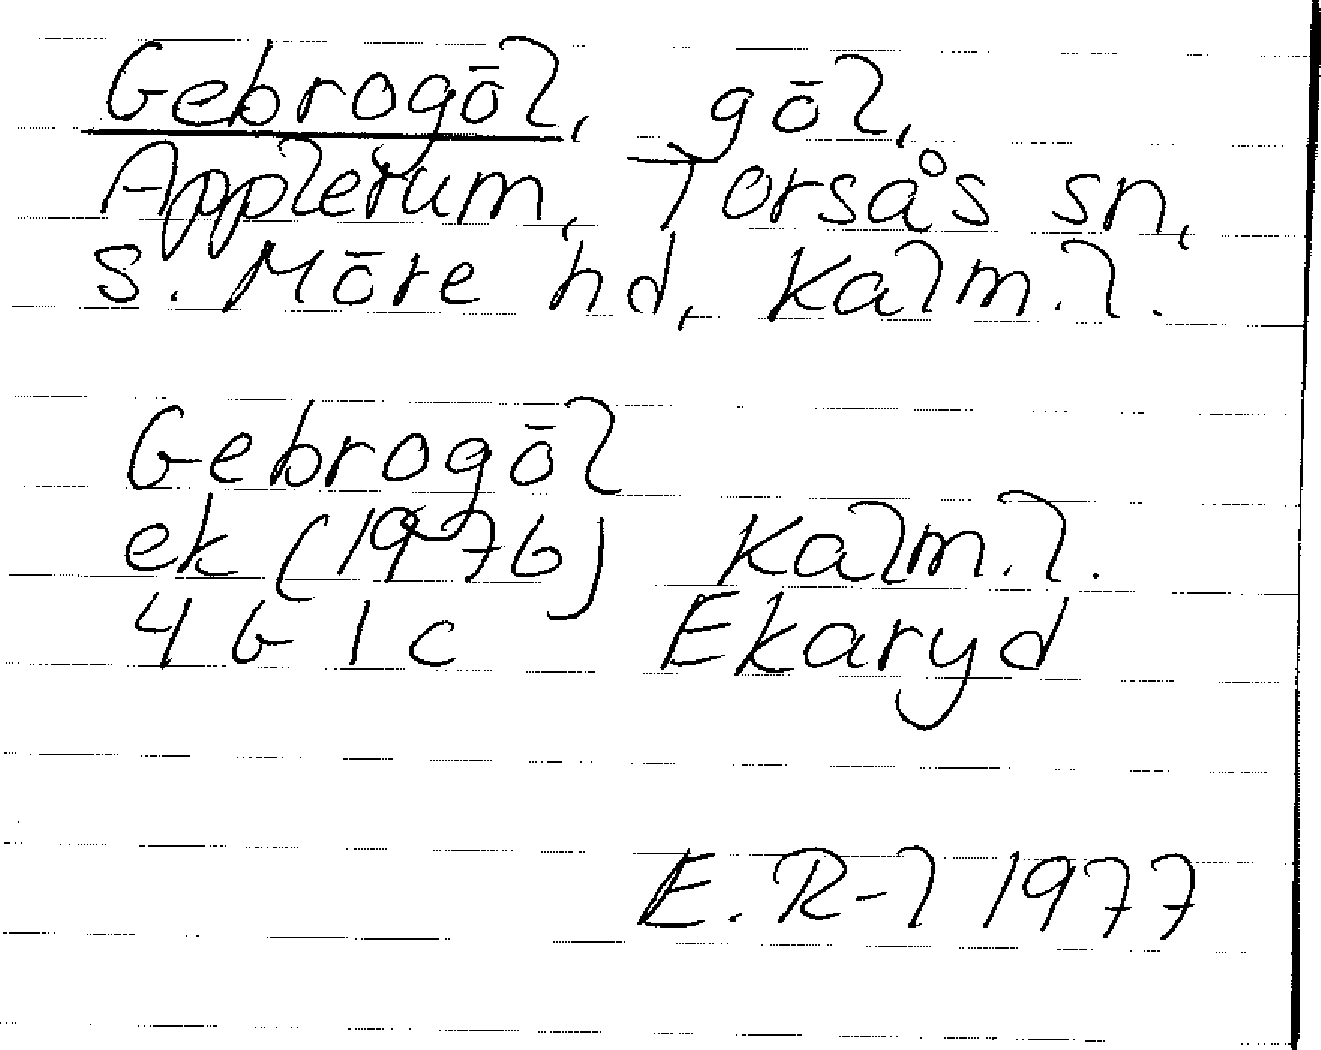 Gebrogöl, göl,
Applerum, Torsås sn,
S. Möre hd, Kalm. l.
Gebrogöl
ek (1976) Kalm. l.
4 G 1 c Ekaryd
E. R-l 1977